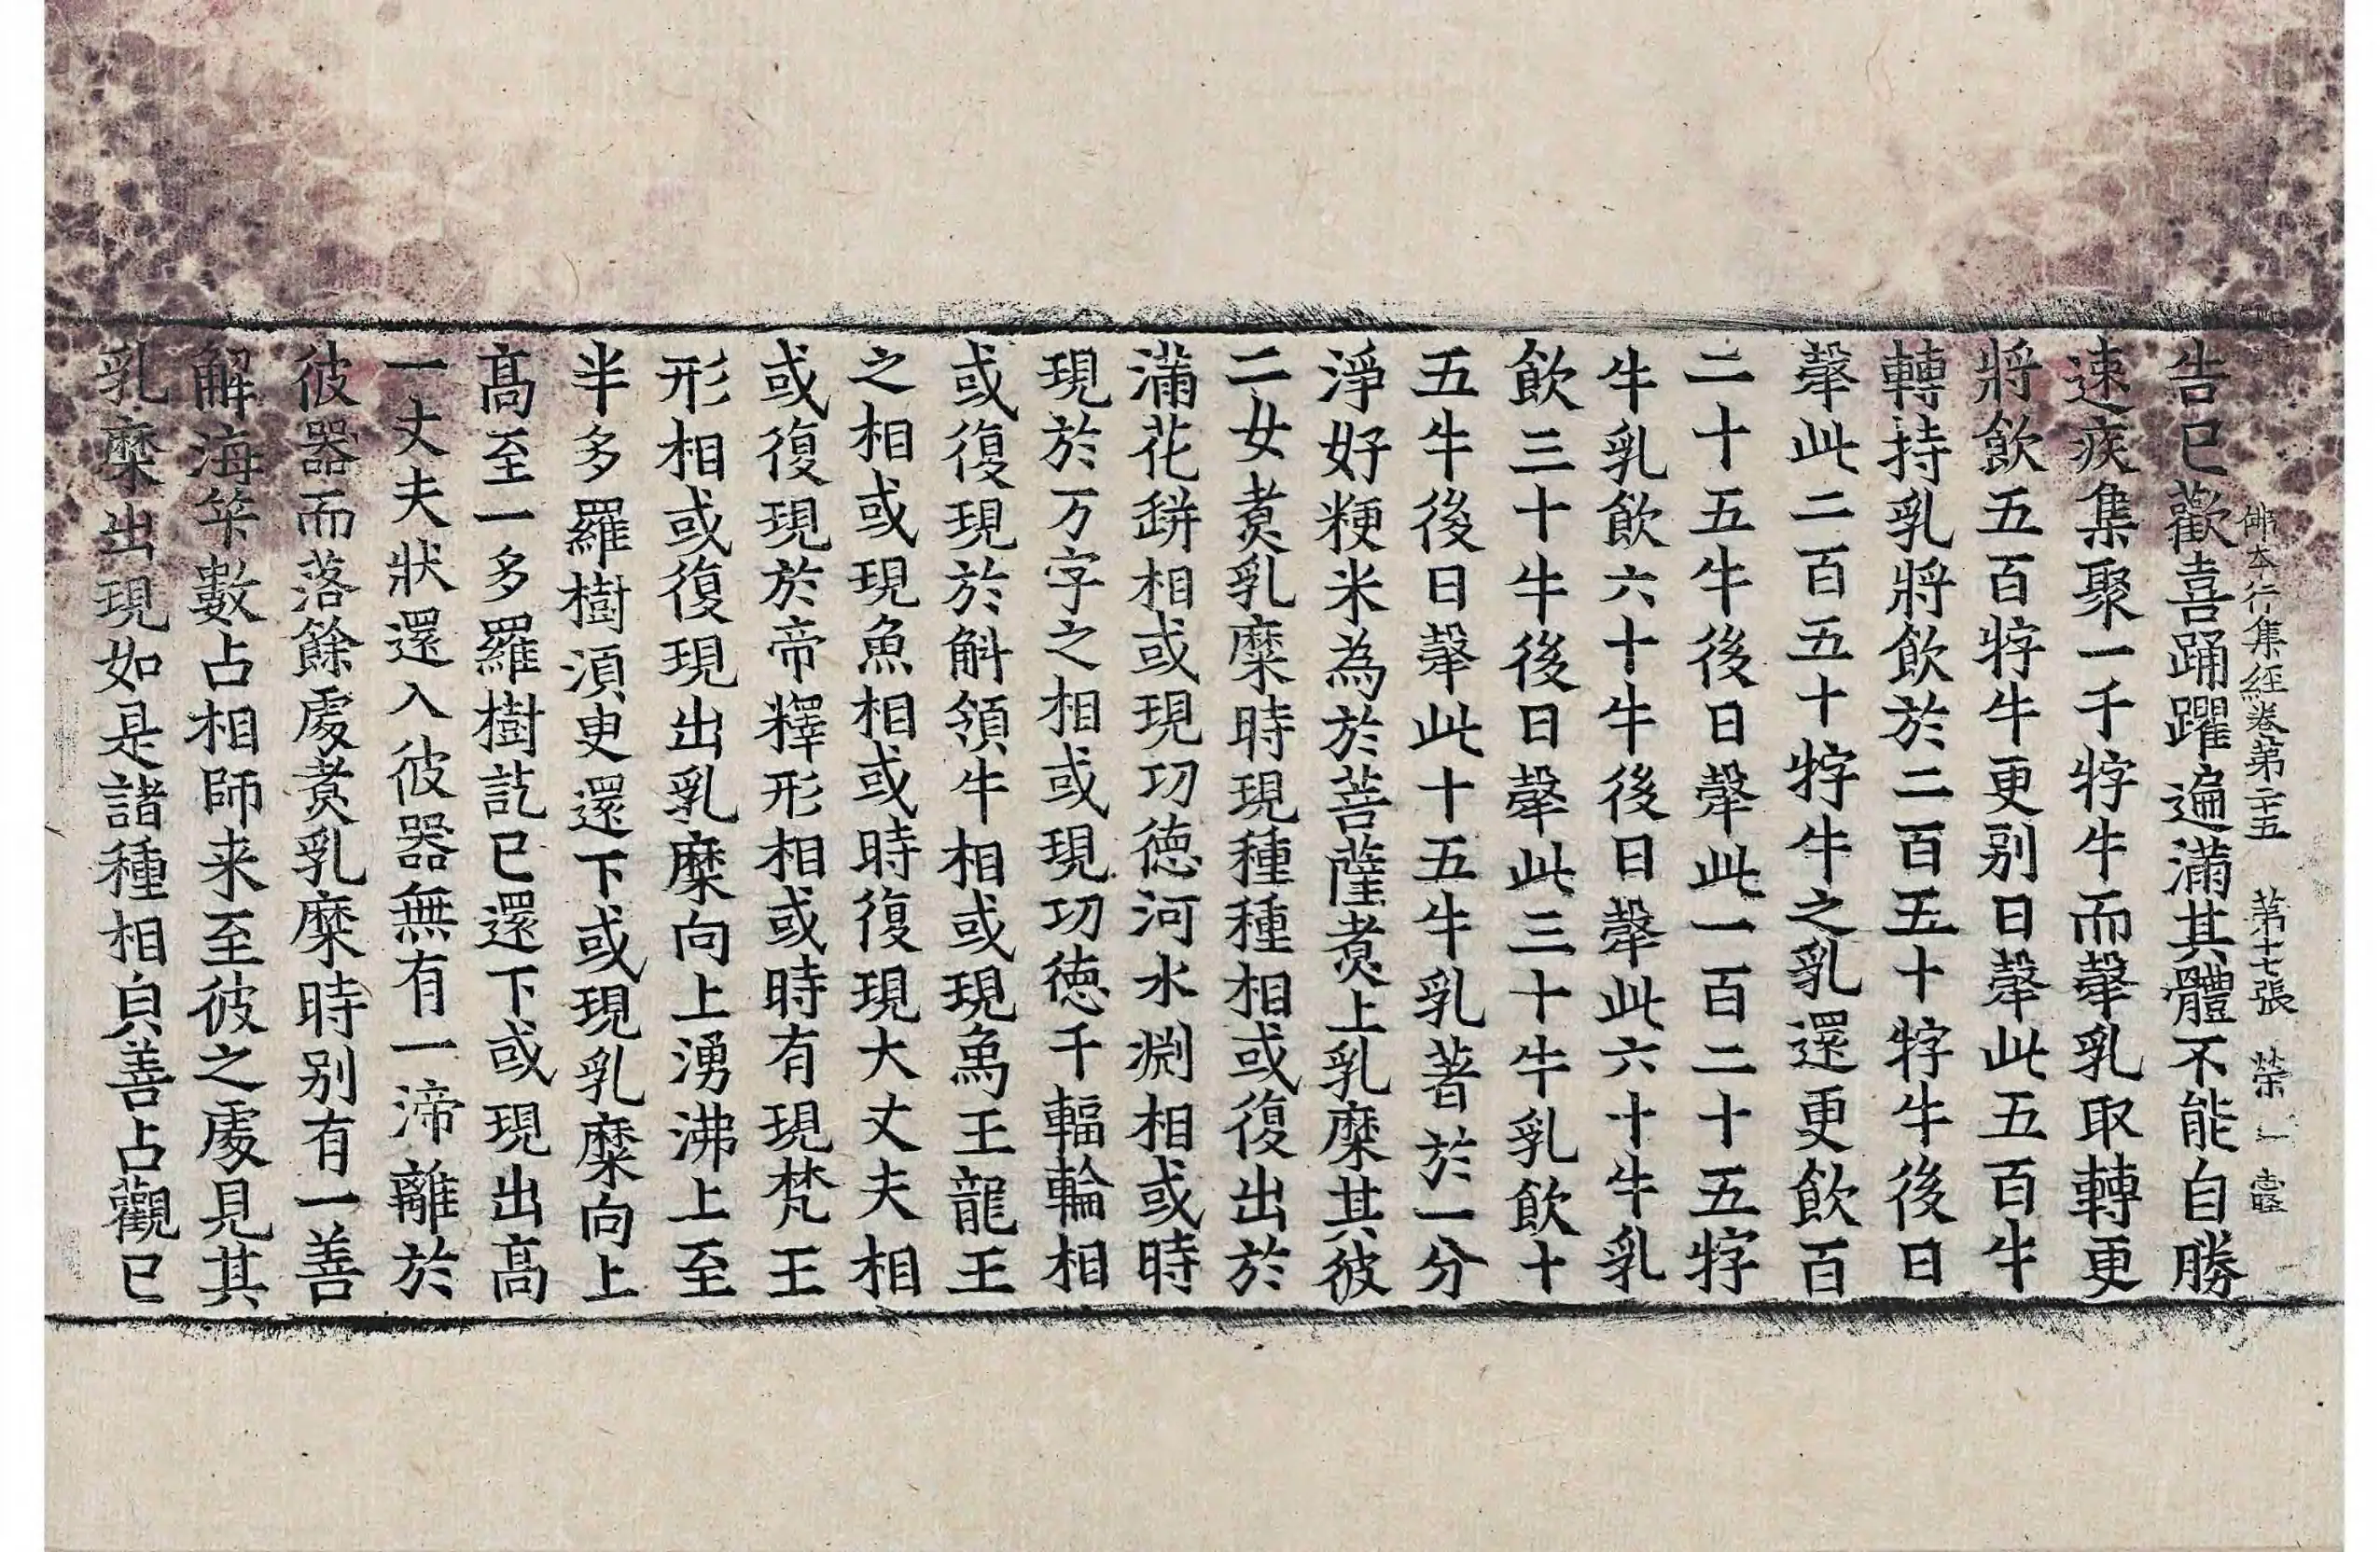 佛本行集經卷第二十五 第十七張 榮一 靈
告已歡喜踊躍遍滿其體不能自勝
速疾集聚一千牸牛而𤚲乳取轉更
將飲五百牸牛更別日𤚲此五百牛
轉持乳將飲於二百五十牸牛後日
𤚲此二百五十牸牛之乳還更飲百
二十五牛後日𤚲此一百二十五牸
牛乳飲六十牛後日𤚲此六十牛乳
飲三十牛後日𤚲此三十牛乳飲十
五牛後日𤚲此十五牛乳著於一分
淨好粳米為於菩薩煑上乳糜其彼
二女煑乳糜時現種種相或復出於
滿花缾相或現功德河水渊相或時
現於万字之相或現功德千輻輪相
或復現於斛領牛相或現象王龍王
之相或現魚相或時復現大丈夫相
或復現於帝釋形相或時有現梵王
形相或復現出乳糜向上湧沸上至
半多羅樹湏更還下或現乳糜向上
髙至一多羅樹訖已還下或現出髙
一丈夫狀還入彼器無有一渧離於
彼器而落餘處煑乳糜時別有一善
解海筭數占相師来至彼之處見其
乳糜出現如是諸種相貟善占觀已